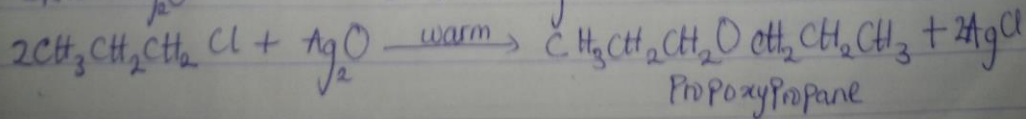 2CH₃CH₂CH₂Cl + Ag₂O —warm→ CH₃CH₂CH₂OCH₂CH₂CH₃ + 2AgCl
Propoxypropane